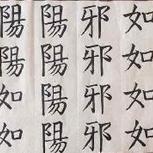 如如如如
邪邪邪邪
陽陽陽陽
陽陽如如